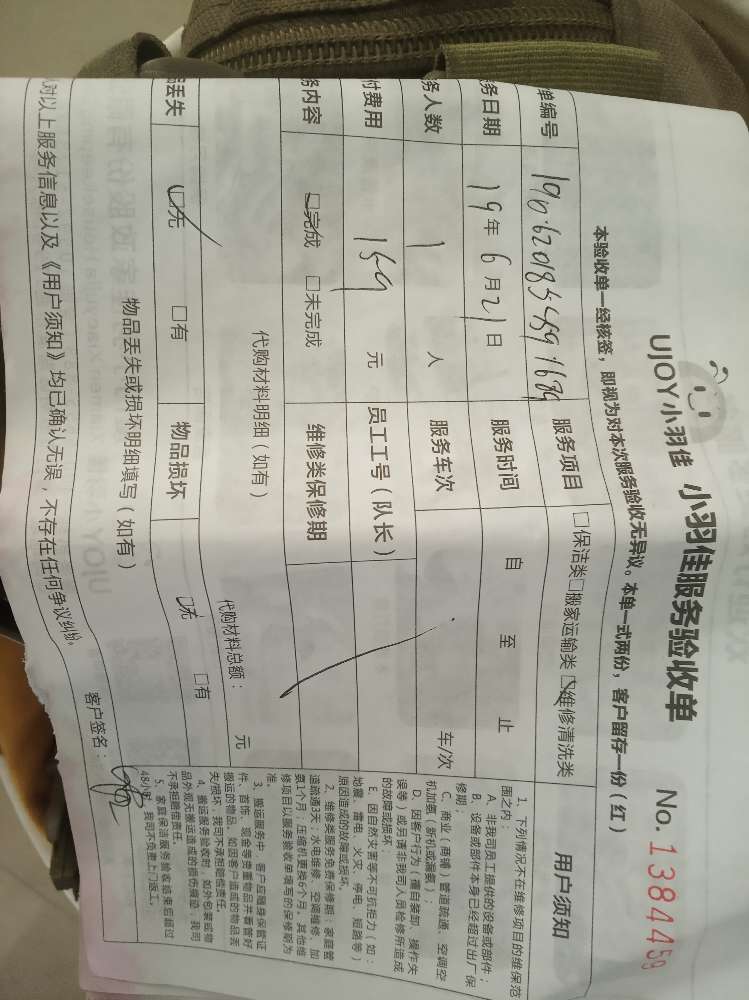 UJOY小羽佳 小羽佳服务验收单 No. 1384459
本验收单一经核签，即视为对本次服务验收无异议。本单一式两份，客户留存一份（红）
单编号 服务项目 □保洁类□搬家运输类 □维修清洗类
务日期 19年 6月 21日 服务时间 自 至 止
务人数 1 人 服务车次 车/次
付费用 159 元 员工工号（队长）
务内容 □完成 □未完成 维修类保修期
代购材料明细（如有）
代购材料总额： 元
品丢失 □无 □有 物品损坏 □无 □有
物品丢失或损坏明细填写（如有）
对以上服务信息以及《用户须知》均已确认无误，不存在任何争议纠纷。
客户签名：
用户须知
1、下列情况不在维修项目的维保范
围之内：
A、非我司员工提供的设备或部件；
B、设备或部件本身已经超过出厂保
修期；
C、商业（商铺）管道疏通、空调空
机加氨（新机或漏氨）；
D、因客户行为（擅自装卸、操作失
误等）或另请非我司人员检修所造成
的故障或损坏；
E、因自然灾害等不可抗拒力（如：
地震、雷电、火灾、停电、短路等）
原因造成的故障或损坏。
2、维修类服务免费保修期：家庭管
道疏通3天；水电维修、空调维修、加
氨1个月；压缩机更换6个月。其他维
修项目以服务验收单填写的保修期为
准。
3、搬运服务中，客户应随身保管证
件、首饰、现金等贵重物品并看管好
搬运的物品。如因客户造成的物品丢
失/损坏，我司不承担赔偿责任。
4、搬运服务验收时，如外包装或物
品外观无搬运造成的损伤痕迹，我司
不承担赔偿责任。
5、家庭保洁服务验收结束后超过
48小时，我司不免费上门返工。